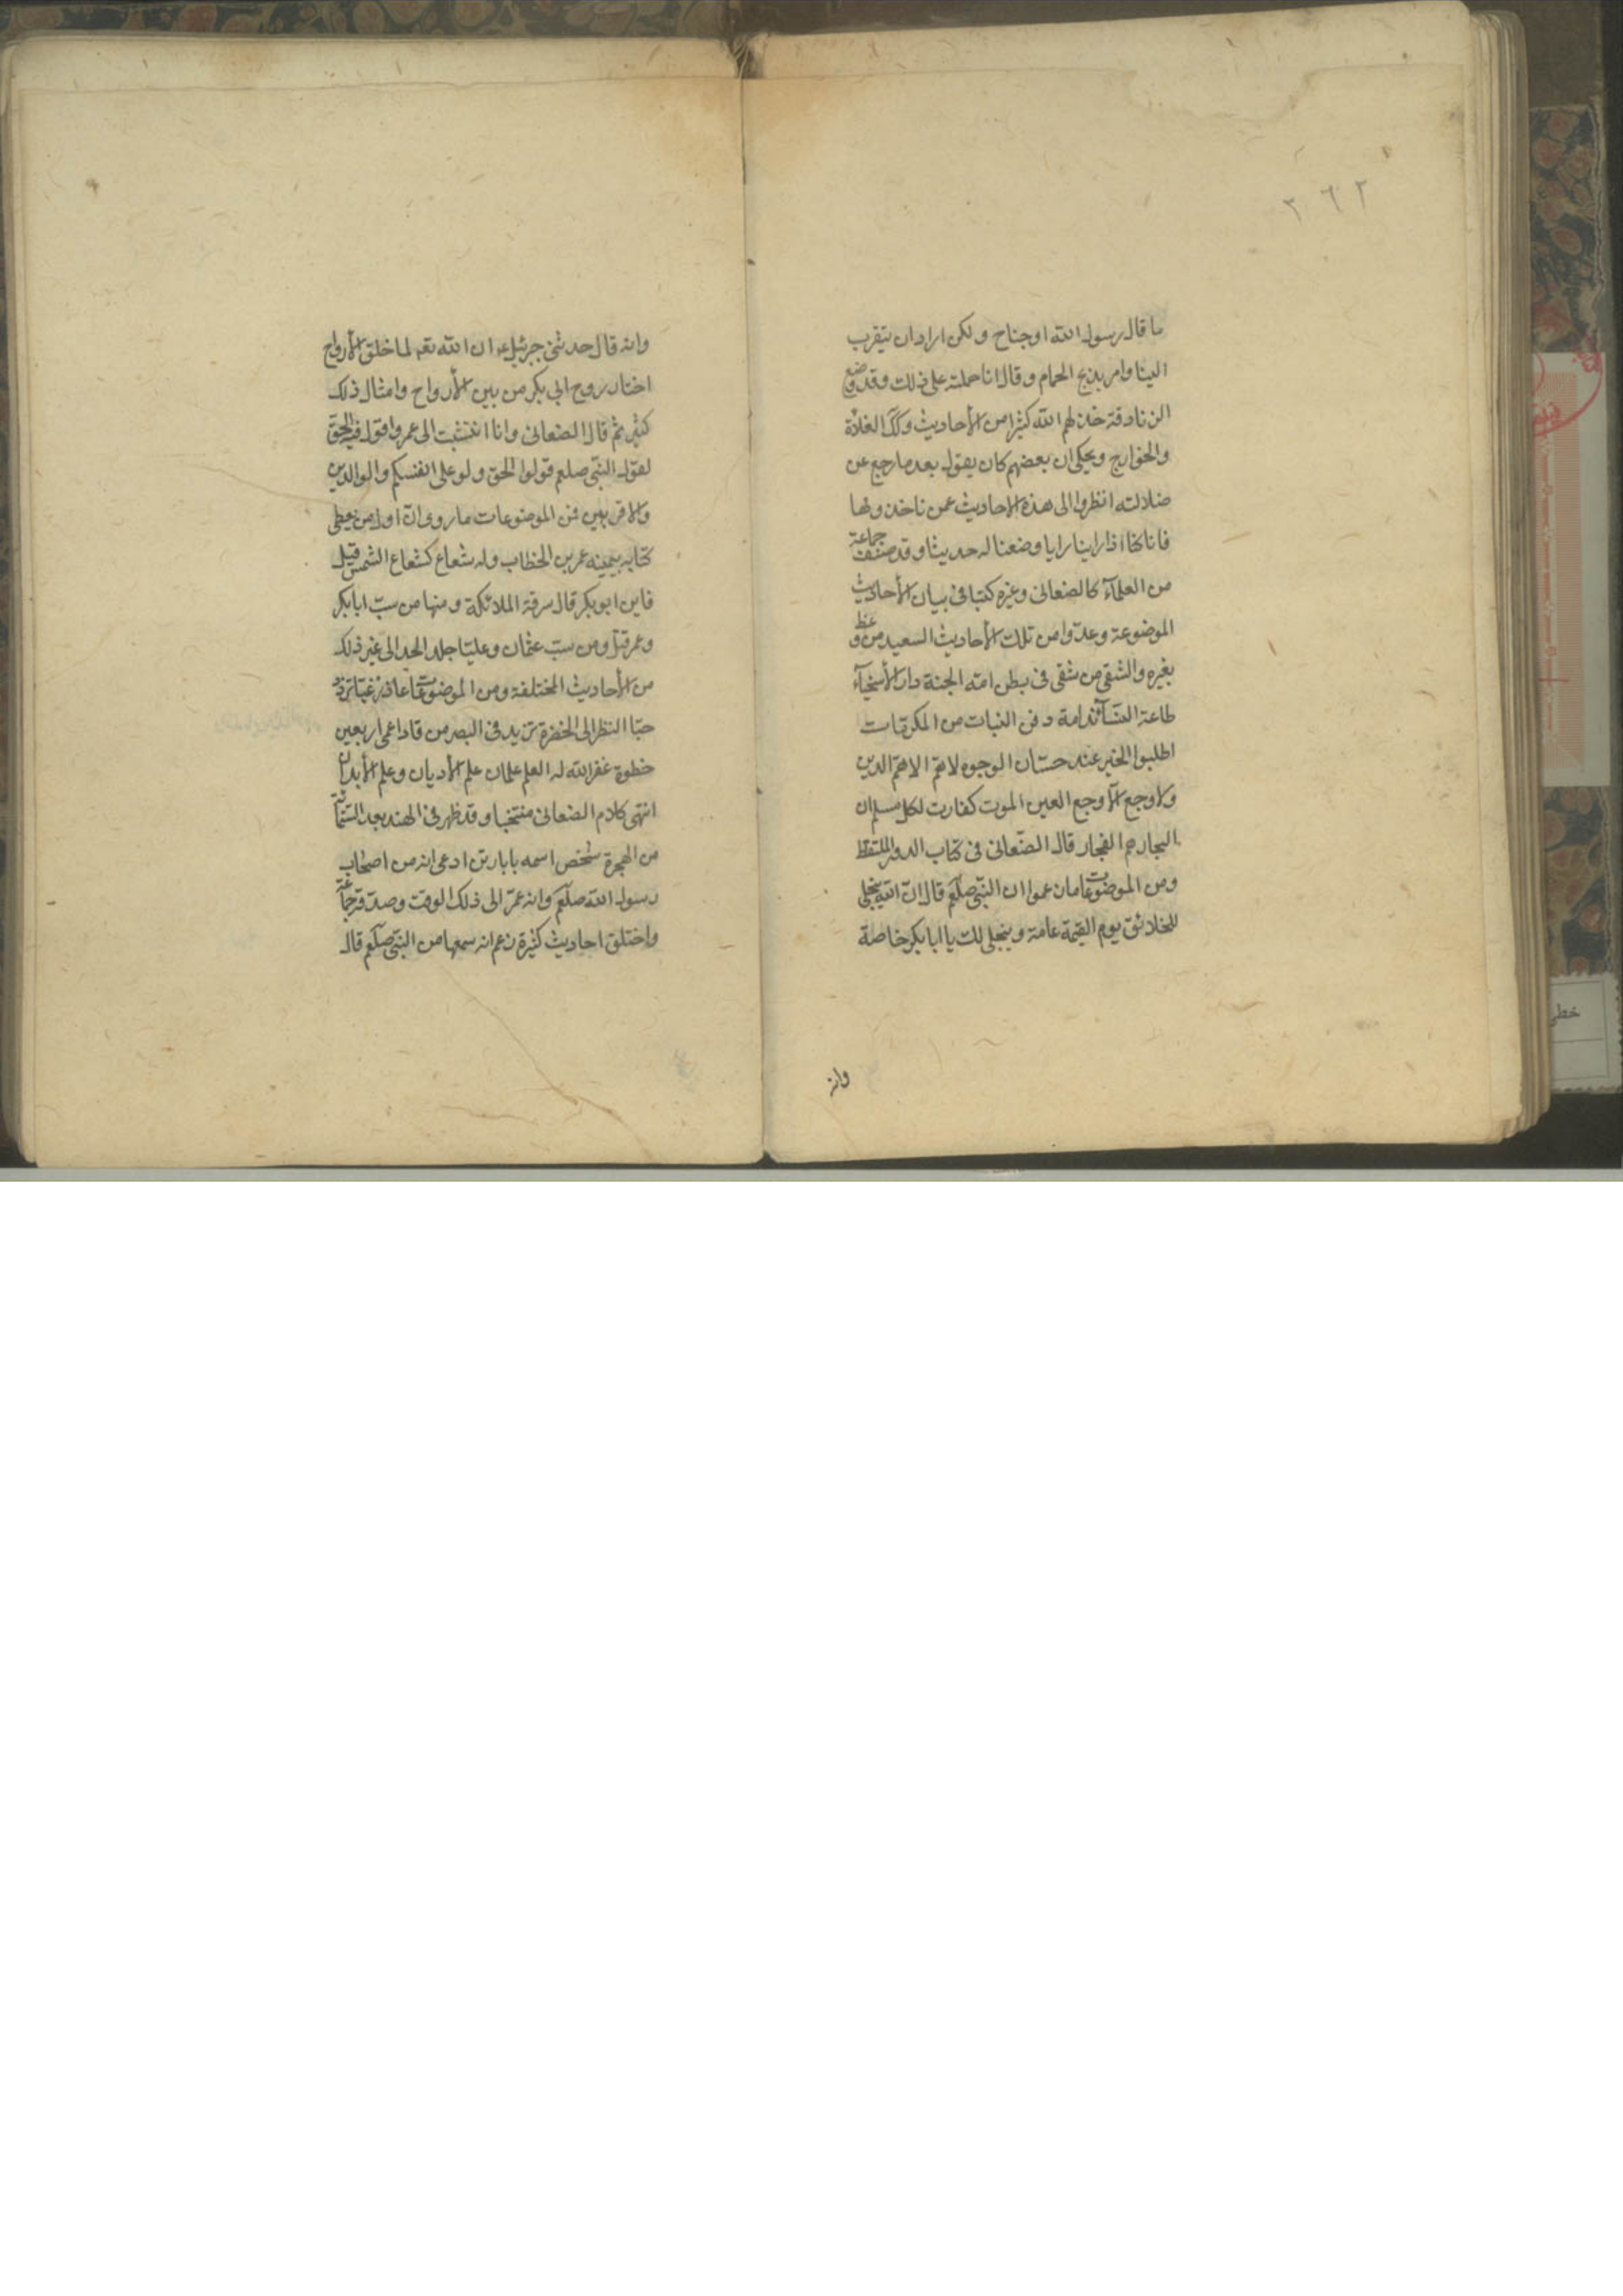 ٢٦٢
ما قال رسول الله او جناح ولكن اراد ان يتقرب
الينا وامر بذبح الحمام وقال انا حملته على ذلك وقد وضع
الزنادقة خذلهم الله كثيرا من الأحاديث وكك الغلاة
والخوارج ويحكى ان بعضهم كان يقول بعد ما رجع عن
ضلالته انظروا الى هذه الاحاديث عمن تاخذونها
فانا كنا اذا راينا رايا وضعنا له حديثا وقد صنف جماعة
من العلمآء كالصغانى وغيره كتبا فى بيان الأحاديث
الموضوعة وعدوا من تلك الأحاديث السعيد من وعظ
بغيره والشقى من شقى فى بطن امه الجنة دار الأسخيآء
طاعة النسآء ندامة دفن البنات من المكرمات
اطلبوا الخير عند حسان الوجوه لا هم الا هم الدين
ولا وجع الا وجع العين الموت كفارت لكل مسلم ان
التجار هم الفجار قال الصغانى فى كتاب الدر الملتقط
ومن الموضوعات ما زعموا ان النبى صلعم قال ان الله يتجلى
للخلائق يوم القيمة عامة ويتجلى لك يا ابا بكر خاصة
وانه
وانه قال حدثنى جبرئيل ع ان الله تعه لما خلق الأرواح
اختار روح ابي بكر من بين الأرواح وامثال ذلك
كثير ثم قال الصغانى وانا انتسبت الى عمر واقول فيه الحق
لقول النبى صلعم قولوا الحق ولو على انفسكم والوالدين
والاقربين فمن الموضوعات ما روى ان اول من يعطى
كتابه بيمينه عمر بن الخطاب وله شعاع كشعاع الشمس قيل
فاين ابو بكر قال سرقة الملائكة ومنها من سب ابا بكر
وعمر قتل ومن سب عثمان وعليا جلد الحد الى غير ذلك
من الأحاديث المختلفة ومن الموضوعات زر غبا تزدد
حبا النظر الى الخضرة تزيد فى البصر من قاد اعمى اربعين
خطوة غفر الله له العلم علمان علم الأديان وعلم الأبدان
انتهى كلام الصغانى منتخبا وقد ظهر فى الهند بعد الستمائة
من الهجرة شخص اسمه بابا رتن ادعى انه من اصحاب
رسول الله صلعم وانه عمر الى ذلك الوقت وصدقه جماعة
واختلق احاديث كثيرة زعم انه سمعها من النبى صلعم قال